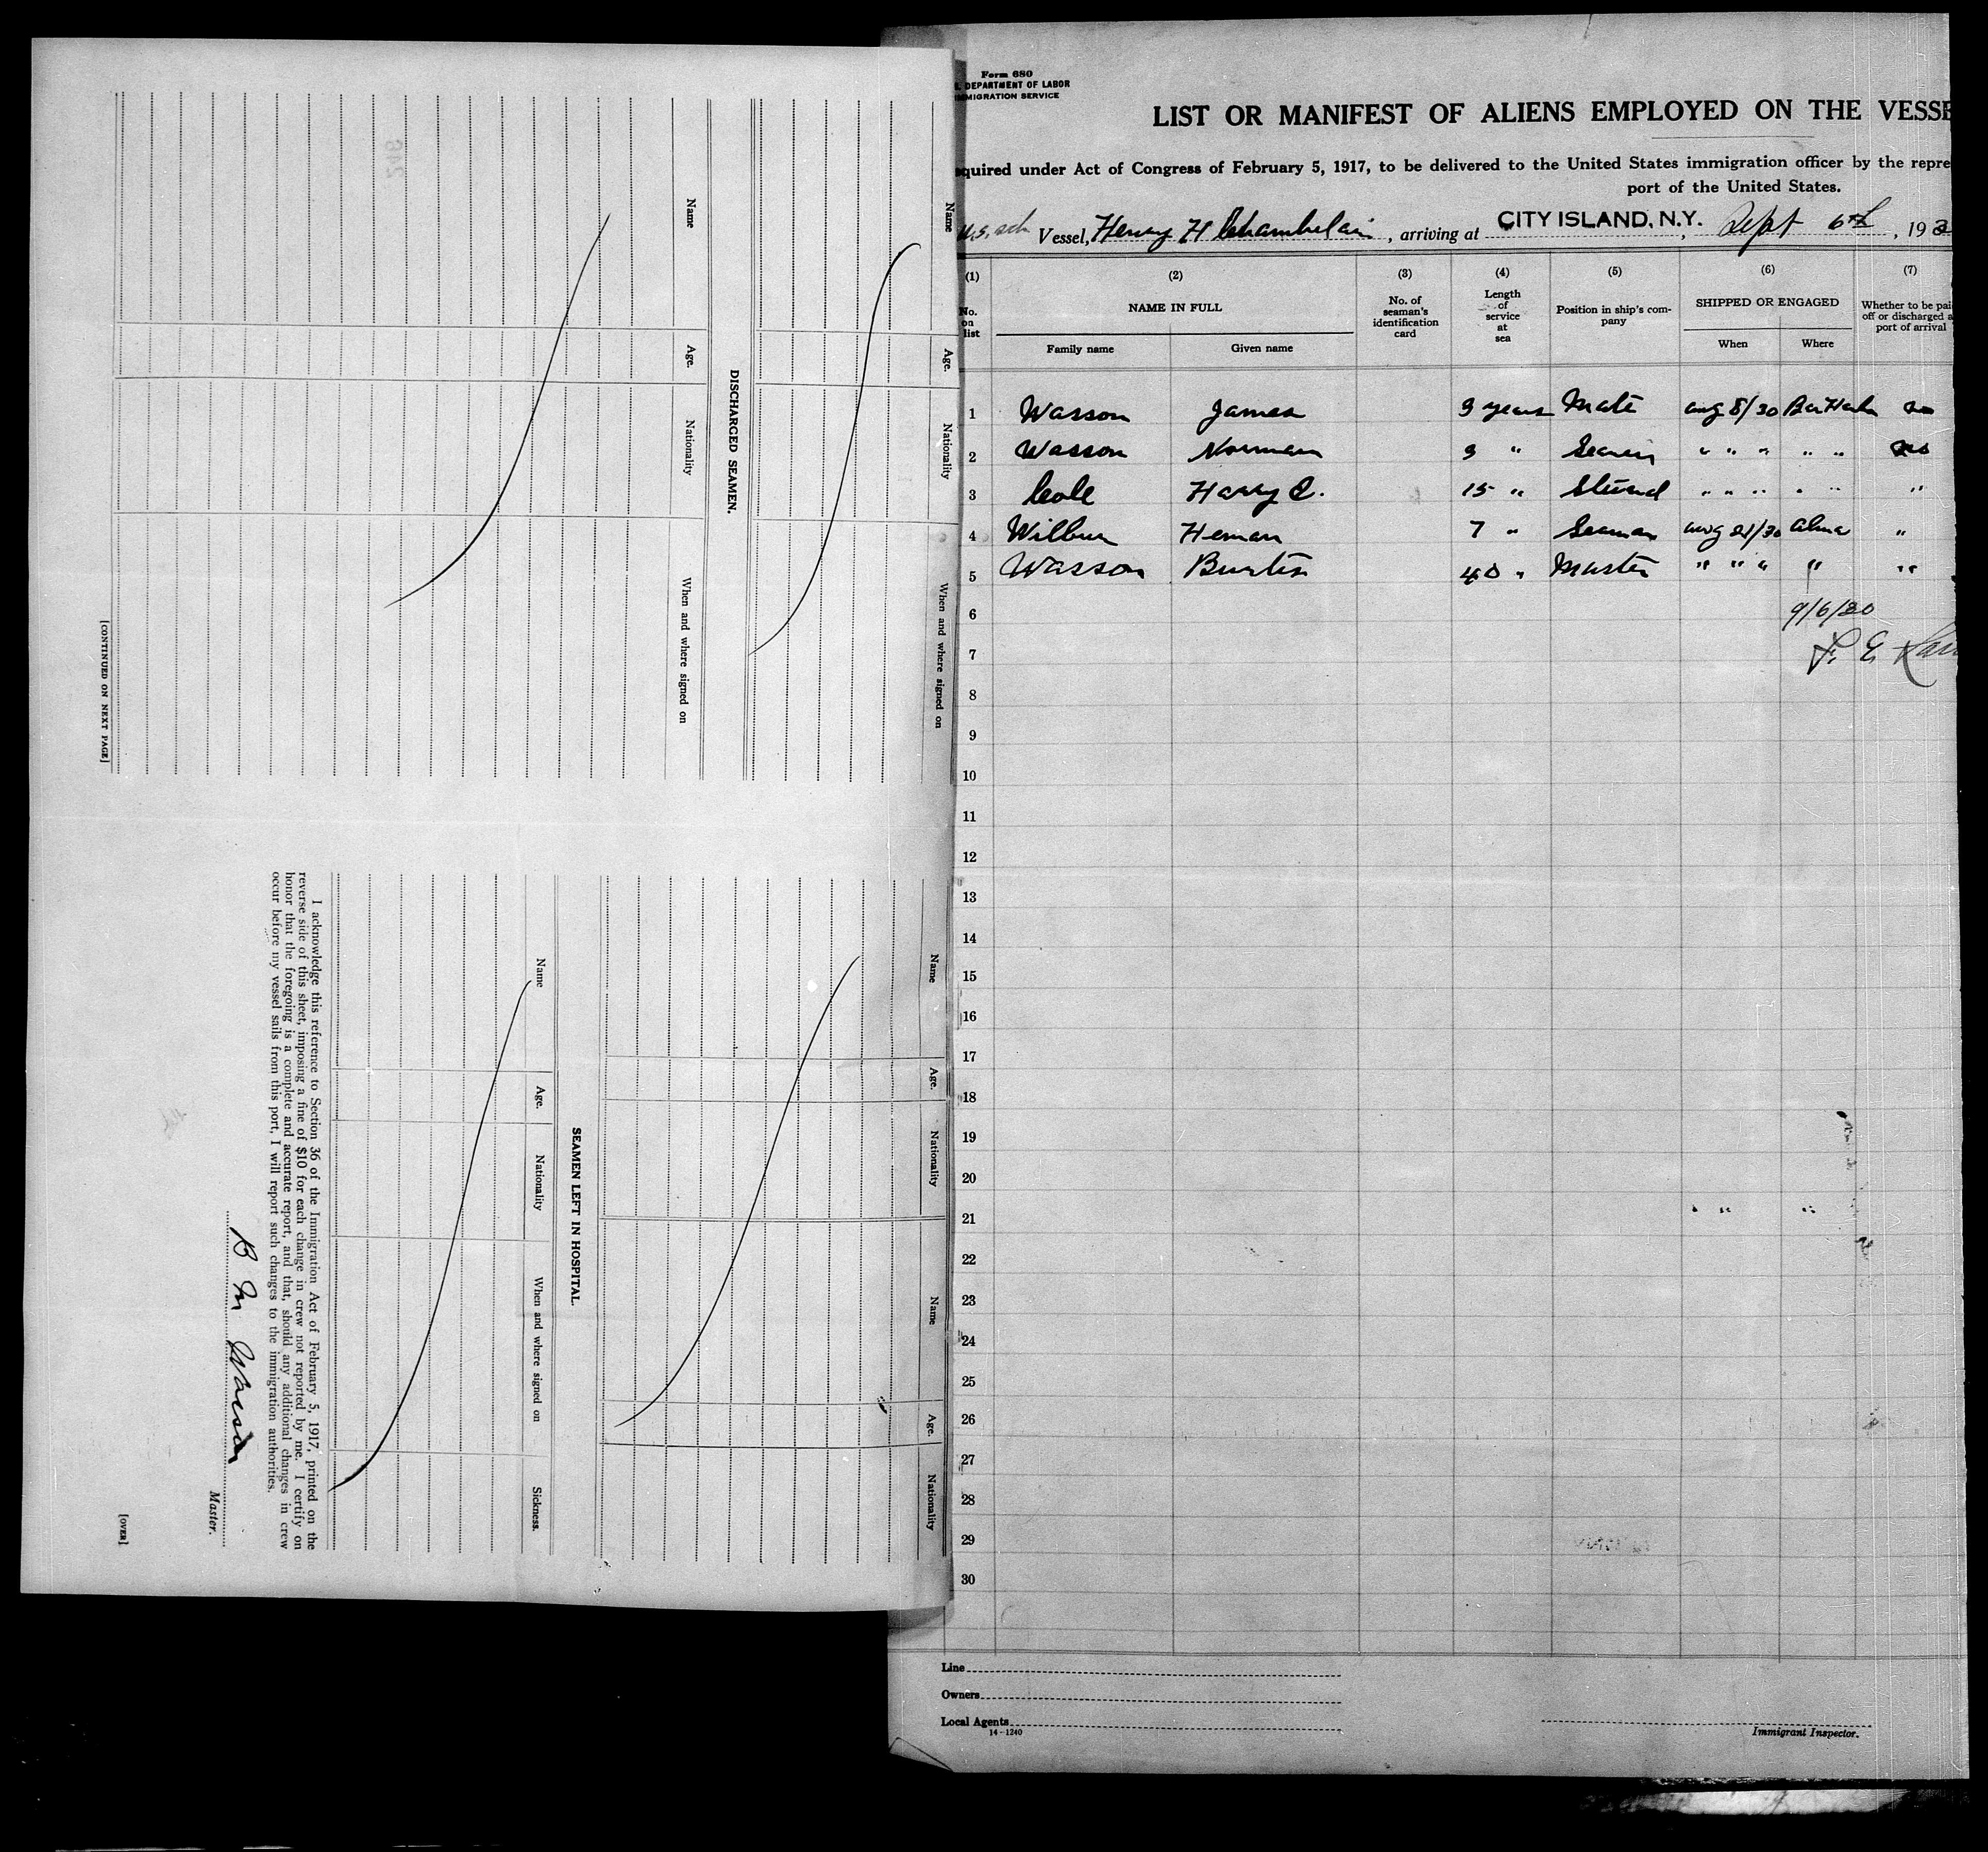 Name
Age.
Nationality
When and where signed on
DISCHARGED SEAMEN.
Name
Age.
Nationality
When and where signed on
[CONTINUED ON NEXT PAGE]
Name
Age.
Nationality
Name
Age.
Nationality
SEAMEN LEFT IN HOSPITAL.
Name
Age.
Nationality
When and where signed on
Sickness.
I acknowledge this reference to Section 36 of the Immigration Act of February 5, 1917, printed on the
reverse side of this sheet, imposing a fine of $10 for each change in crew not reported by me. I certify on
honor that the foregoing is a complete and accurate report, and that, should any additional changes in crew
occur before my vessel sails from this port, I will report such changes to the immigration authorities.
B M Wasson
Master.
[OVER]
Form 680
DEPARTMENT OF LABOR
IMMIGRATION SERVICE
LIST OR MANIFEST OF ALIENS EMPLOYED ON THE VESSE
quired under Act of Congress of February 5, 1917, to be delivered to the United States immigration officer by the repre
port of the United States.
U.S. sch Vessel, Henry H Chamberlain, arriving at CITY ISLAND, N.Y., Sept 6th, 193
(1) (2) (3) (4) (5) (6) (7)
No. on list
NAME IN FULL
Family name Given name
No. of seaman's identification card
Length of service at sea
Position in ship's company
SHIPPED OR ENGAGED
When Where
Whether to be pai off or discharged a port of arrival
1 Wasson James 3 years Mate Aug 8/30 Bar Harbor no
2 Wasson Norman 3 " " " " " " no
3 Cole Harry C. 15 " Steward " " " " " "
4 Wilbur Heman 7 " Seaman Aug 21/30 Alma "
5 Wasson Burton 40 " Master " " " " "
6 9/6/30
7 L. E.
8
9
10
11
12
13
14
15
16
17
18
19
20
21
22
23
24
25
26
27
28
29
30
Line
Owners
Local Agents
14-1240
Immigrant Inspector.